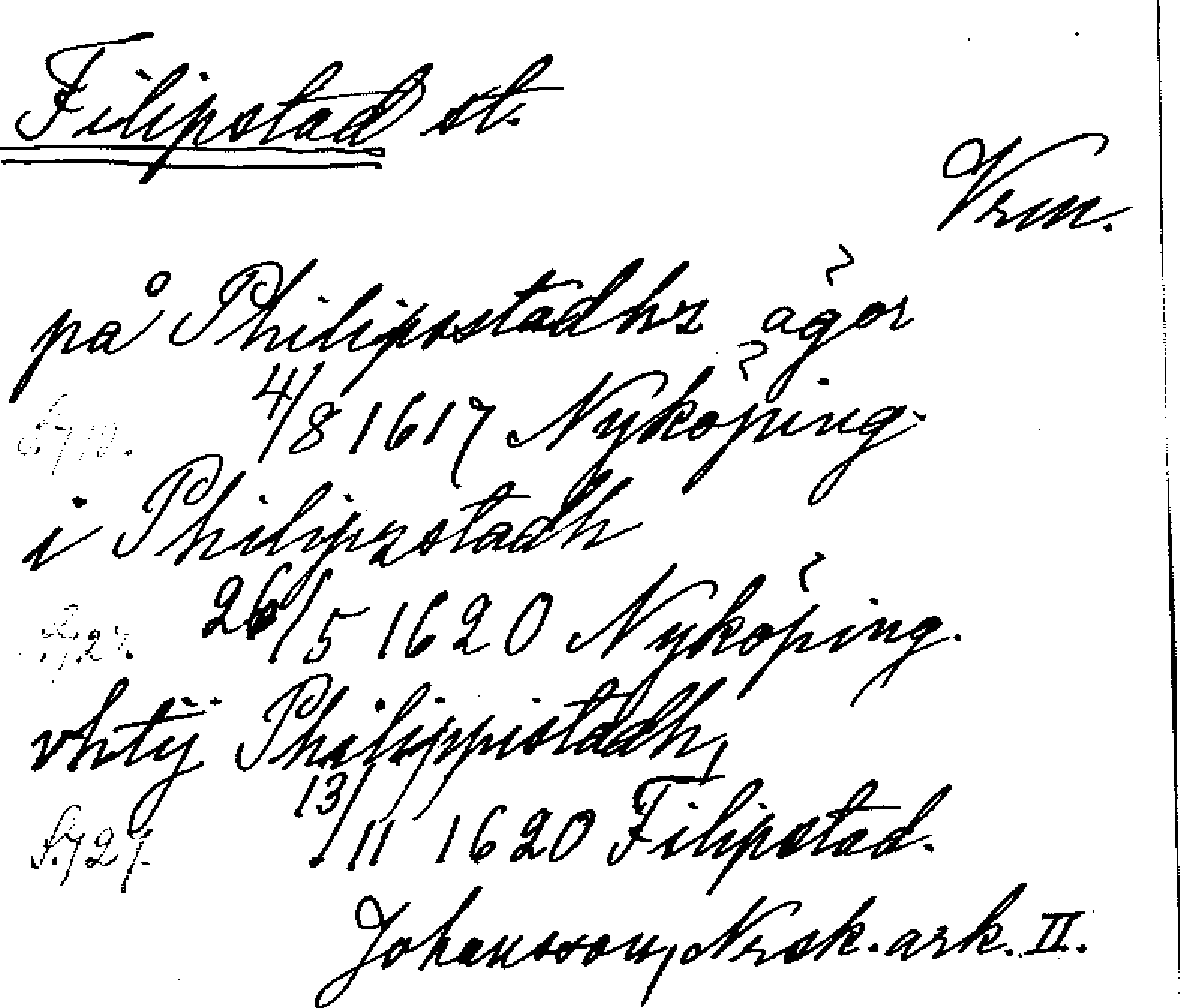 Filipstad st.
Vrm.
på Philipstadhz ägor
4/8 1617 Nyköping.
i Philipzstadh
26/5 1620 Nyköping.
vhtij Philippistadh,
S. 727. 13/11 1620 Filipstad.
Johansson, Norsk. ark. II.